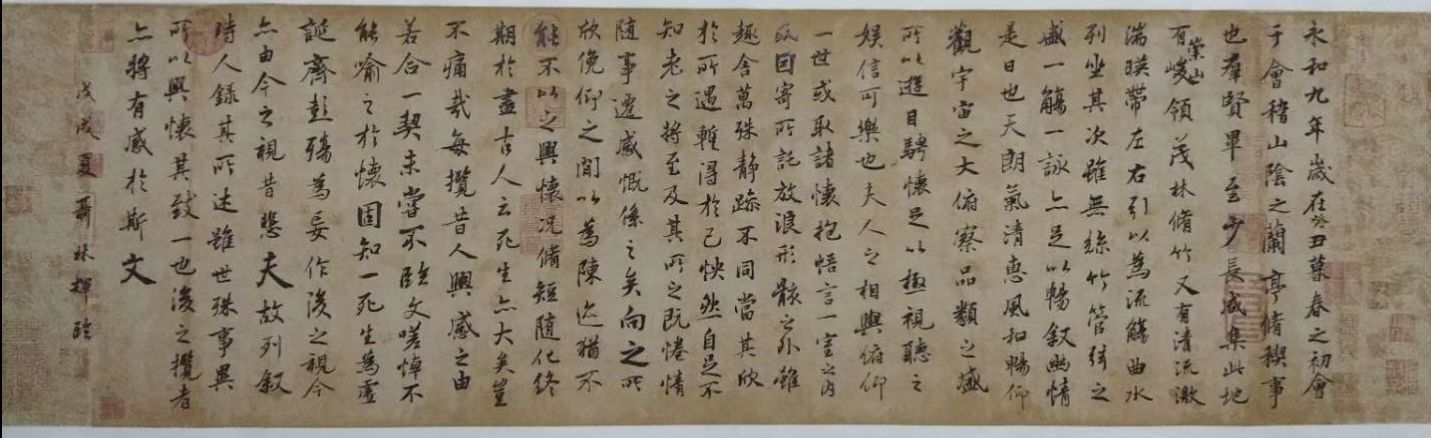 永和九年歲在癸丑暮春之初會
于會稽山陰之蘭亭脩禊事
也羣賢畢至少長咸集此地
有崇山峻領茂林脩竹又有清流激
湍暎帶左右引以為流觴曲水
列坐其次雖無絲竹管弦之
盛一觴一詠亦足以暢叙幽情
是日也天朗氣清惠風和暢仰
觀宇宙之大俯察品類之盛
所以遊目騁懷足以極視聽之
娛信可樂也夫人之相與俯仰
一世或取諸懷抱悟言一室之內
或因寄所託放浪形骸之外雖
趣舍萬殊靜躁不同當其欣
於所遇蹔得於己怏然自足不
知老之將至及其所之既惓情
隨事遷感慨係之矣向之所
欣俛仰之閒以為陳迹猶不
能不以之興懷況脩短隨化終
期於盡古人云死生亦大矣豈
不痛哉每攬昔人興感之由
若合一契未嘗不臨文嗟悼不
能喻之於懷固知一死生為虛
誕齊彭殤為妄作後之視今
亦由今之視昔悲夫故列叙
時人錄其所述雖世殊事異
所以興懷其致一也後之攬者
亦將有感於斯文
戊戌夏聶林輝臨